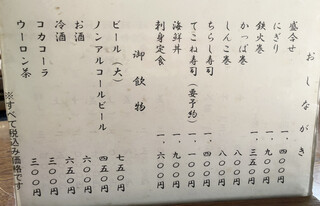 おしながき
盛合せ 一、四〇〇円
にぎり 一、九〇〇円
鉄火巻 一、三五〇円
かっぱ巻 八〇〇円
しんこ巻 八〇〇円
ちらし寿司 一、四〇〇円
てこね寿司（要予約） 一、一〇〇円
海鮮丼 一、九〇〇円
刺身定食 一、六〇〇円
御飲物
ビール（大） 七五〇円
ノンアルコールビール 四五〇円
お酒 六〇〇円
冷酒 六五〇円
コカコーラ 三〇〇円
ウーロン茶 三〇〇円
※すべて税込み価格です